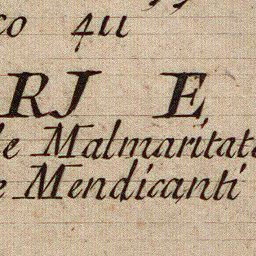 co 411
RJ E
le Malmaritate
e Mendicanti